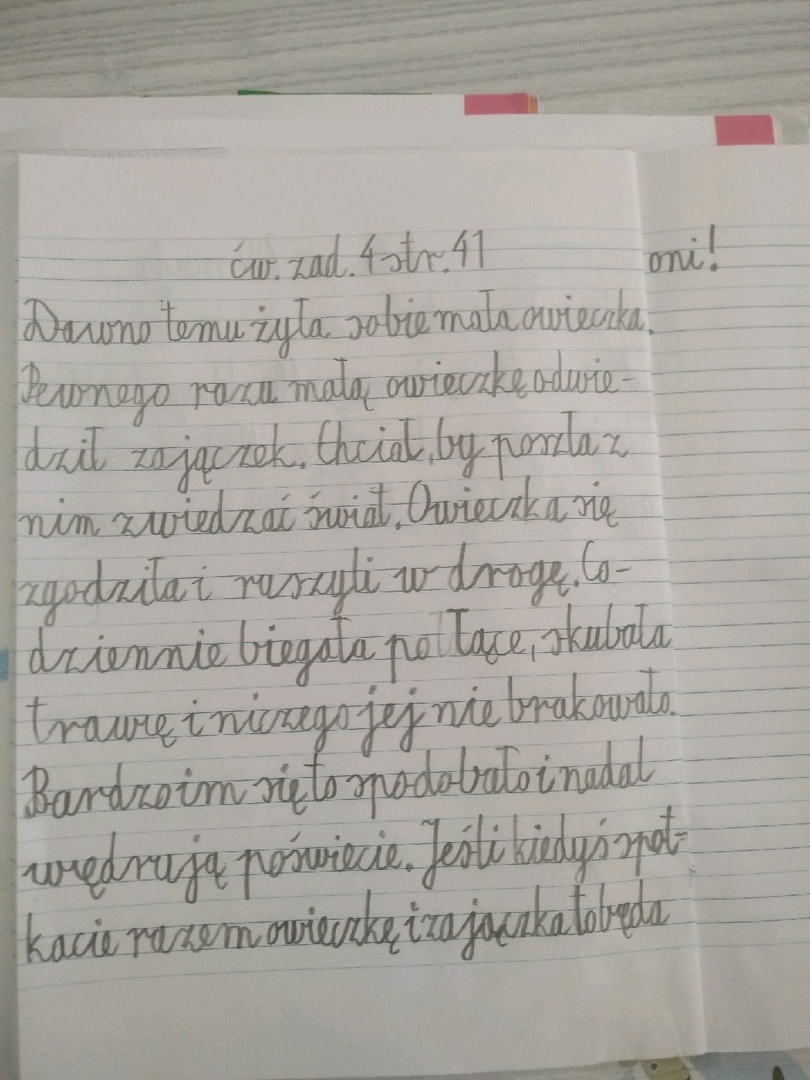 ćw. zad. 4 str. 41
Dawno temu żyła sobie mała owieczka.
Pewnego razu małą owieczkę odwie-
dził zajączek. Chciał, by poszła z
nim zwiedzać świat. Owieczka się
zgodziła i ruszyli w drogę. Co-
dziennie biegała po łące, skubała
trawę i niczego jej nie brakowało.
Bardzo im się to spodobało i nadal
wędrują po świecie. Jeśli kiedyś spot-
kacie razem owieczkę i zajączka to będa
oni!